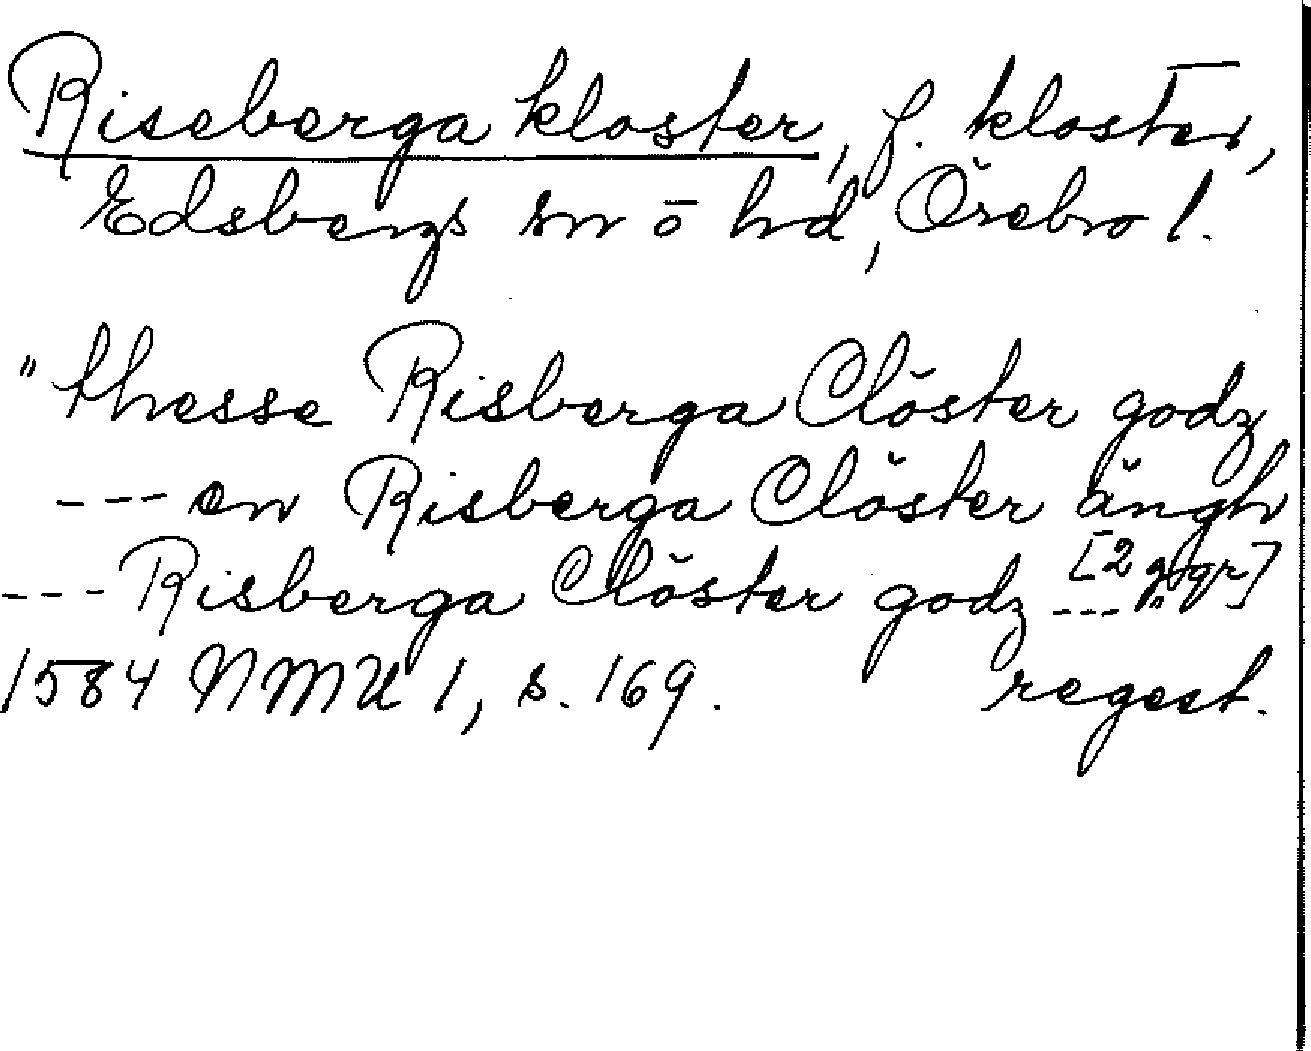 Riseberga kloster, f. kloster,
Edsbergs sn o hd, Örebro l.
"thesse Risberga Clöster godz
--- en Risberga Clöster ängh
--- Risberga Clöster godz [2 ggr] ---"
1584 NMU 1, s. 169. regest.